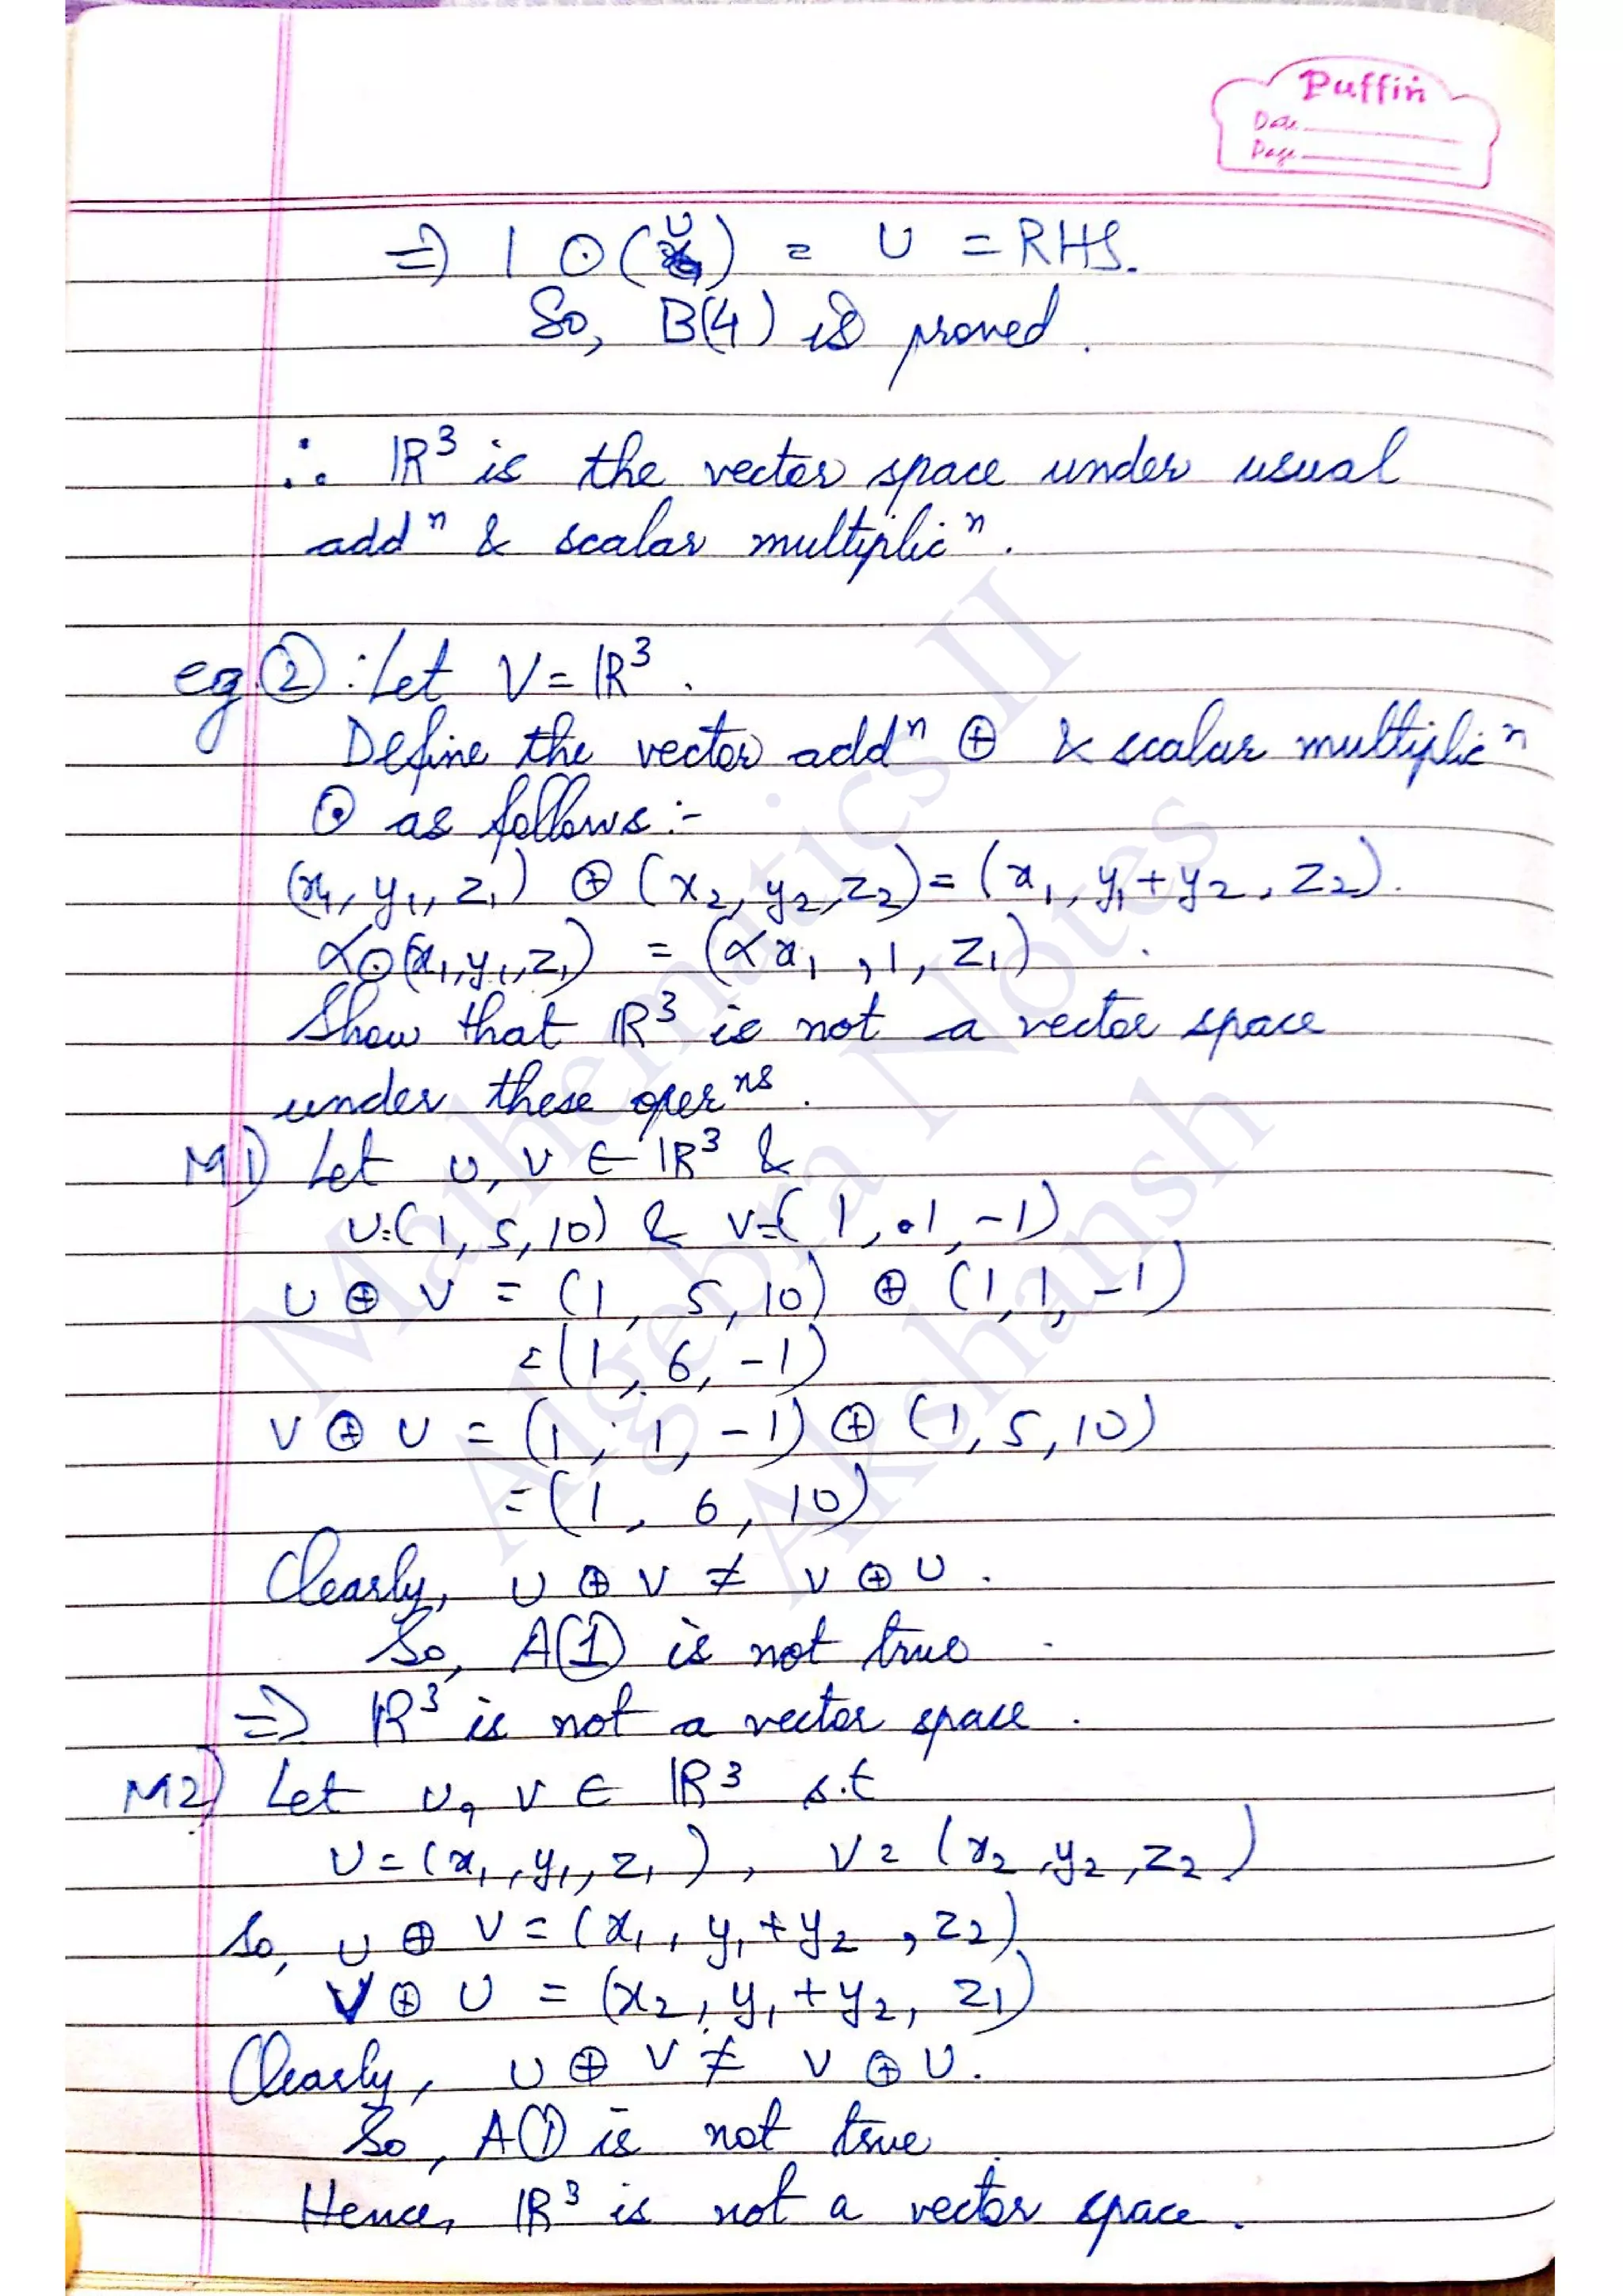 Puffin
Date
Page
⇒ 1 ⊙ (U) = U = RHS.
So, B(4) is proved.
∴ ℝ³ is the vector space under usual
addⁿ & scalar multiplicⁿ.
eg ②: Let V = ℝ³.
Define the vector addⁿ ⊕ & scalar multiplicⁿ
⊙ as follows :-
(x₁, y₁, z₁) ⊕ (x₂, y₂, z₂) = (x₁, y₁+y₂, z₂).
α⊙(x₁, y₁, z₁) = (αx₁, 1, z₁)
Show that ℝ³ is not a vector space
under these operⁿˢ.
M1) Let u, v ∈ ℝ³ &
U=(1, 5, 10) & V=(1, 1, -1)
U ⊕ V = (1, 5, 10) ⊕ (1, 1, -1)
=(1, 6, -1)
V ⊕ U = (1, 1, -1) ⊕ (1, 5, 10)
=(1, 6, 10)
Clearly, U ⊕ V ≠ V ⊕ U.
So, A(1) is not true
⇒ ℝ³ is not a vector space.
M2) Let u, v ∈ ℝ³ s.t
U=(x₁, y₁, z₁), V=(x₂, y₂, z₂)
So, U ⊕ V = (x₁, y₁+y₂, z₂)
V ⊕ U = (x₂, y₁+y₂, z₁)
Clearly, U ⊕ V ≠ V ⊕ U.
So, A(1) is not true
Hence, ℝ³ is not a vector space.
Mathematics II
Algebra Notes
Akshansh